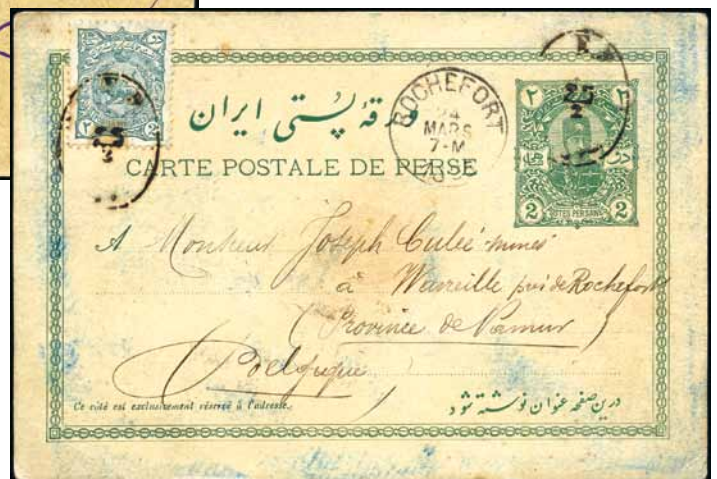 ورقهٔ پستی ایران
CARTE POSTALE DE PERSE
ROCHEFORT
24
MARS
7-M
25
2
25
2
۲
2 2
2 2
A Monsieur Joseph
à Waveille près de Rochefort
(Province de Namur)
Belgique
Ce côté est exclusivement réservé à l'adresse.
درین صفحه عنوان نوشته شود